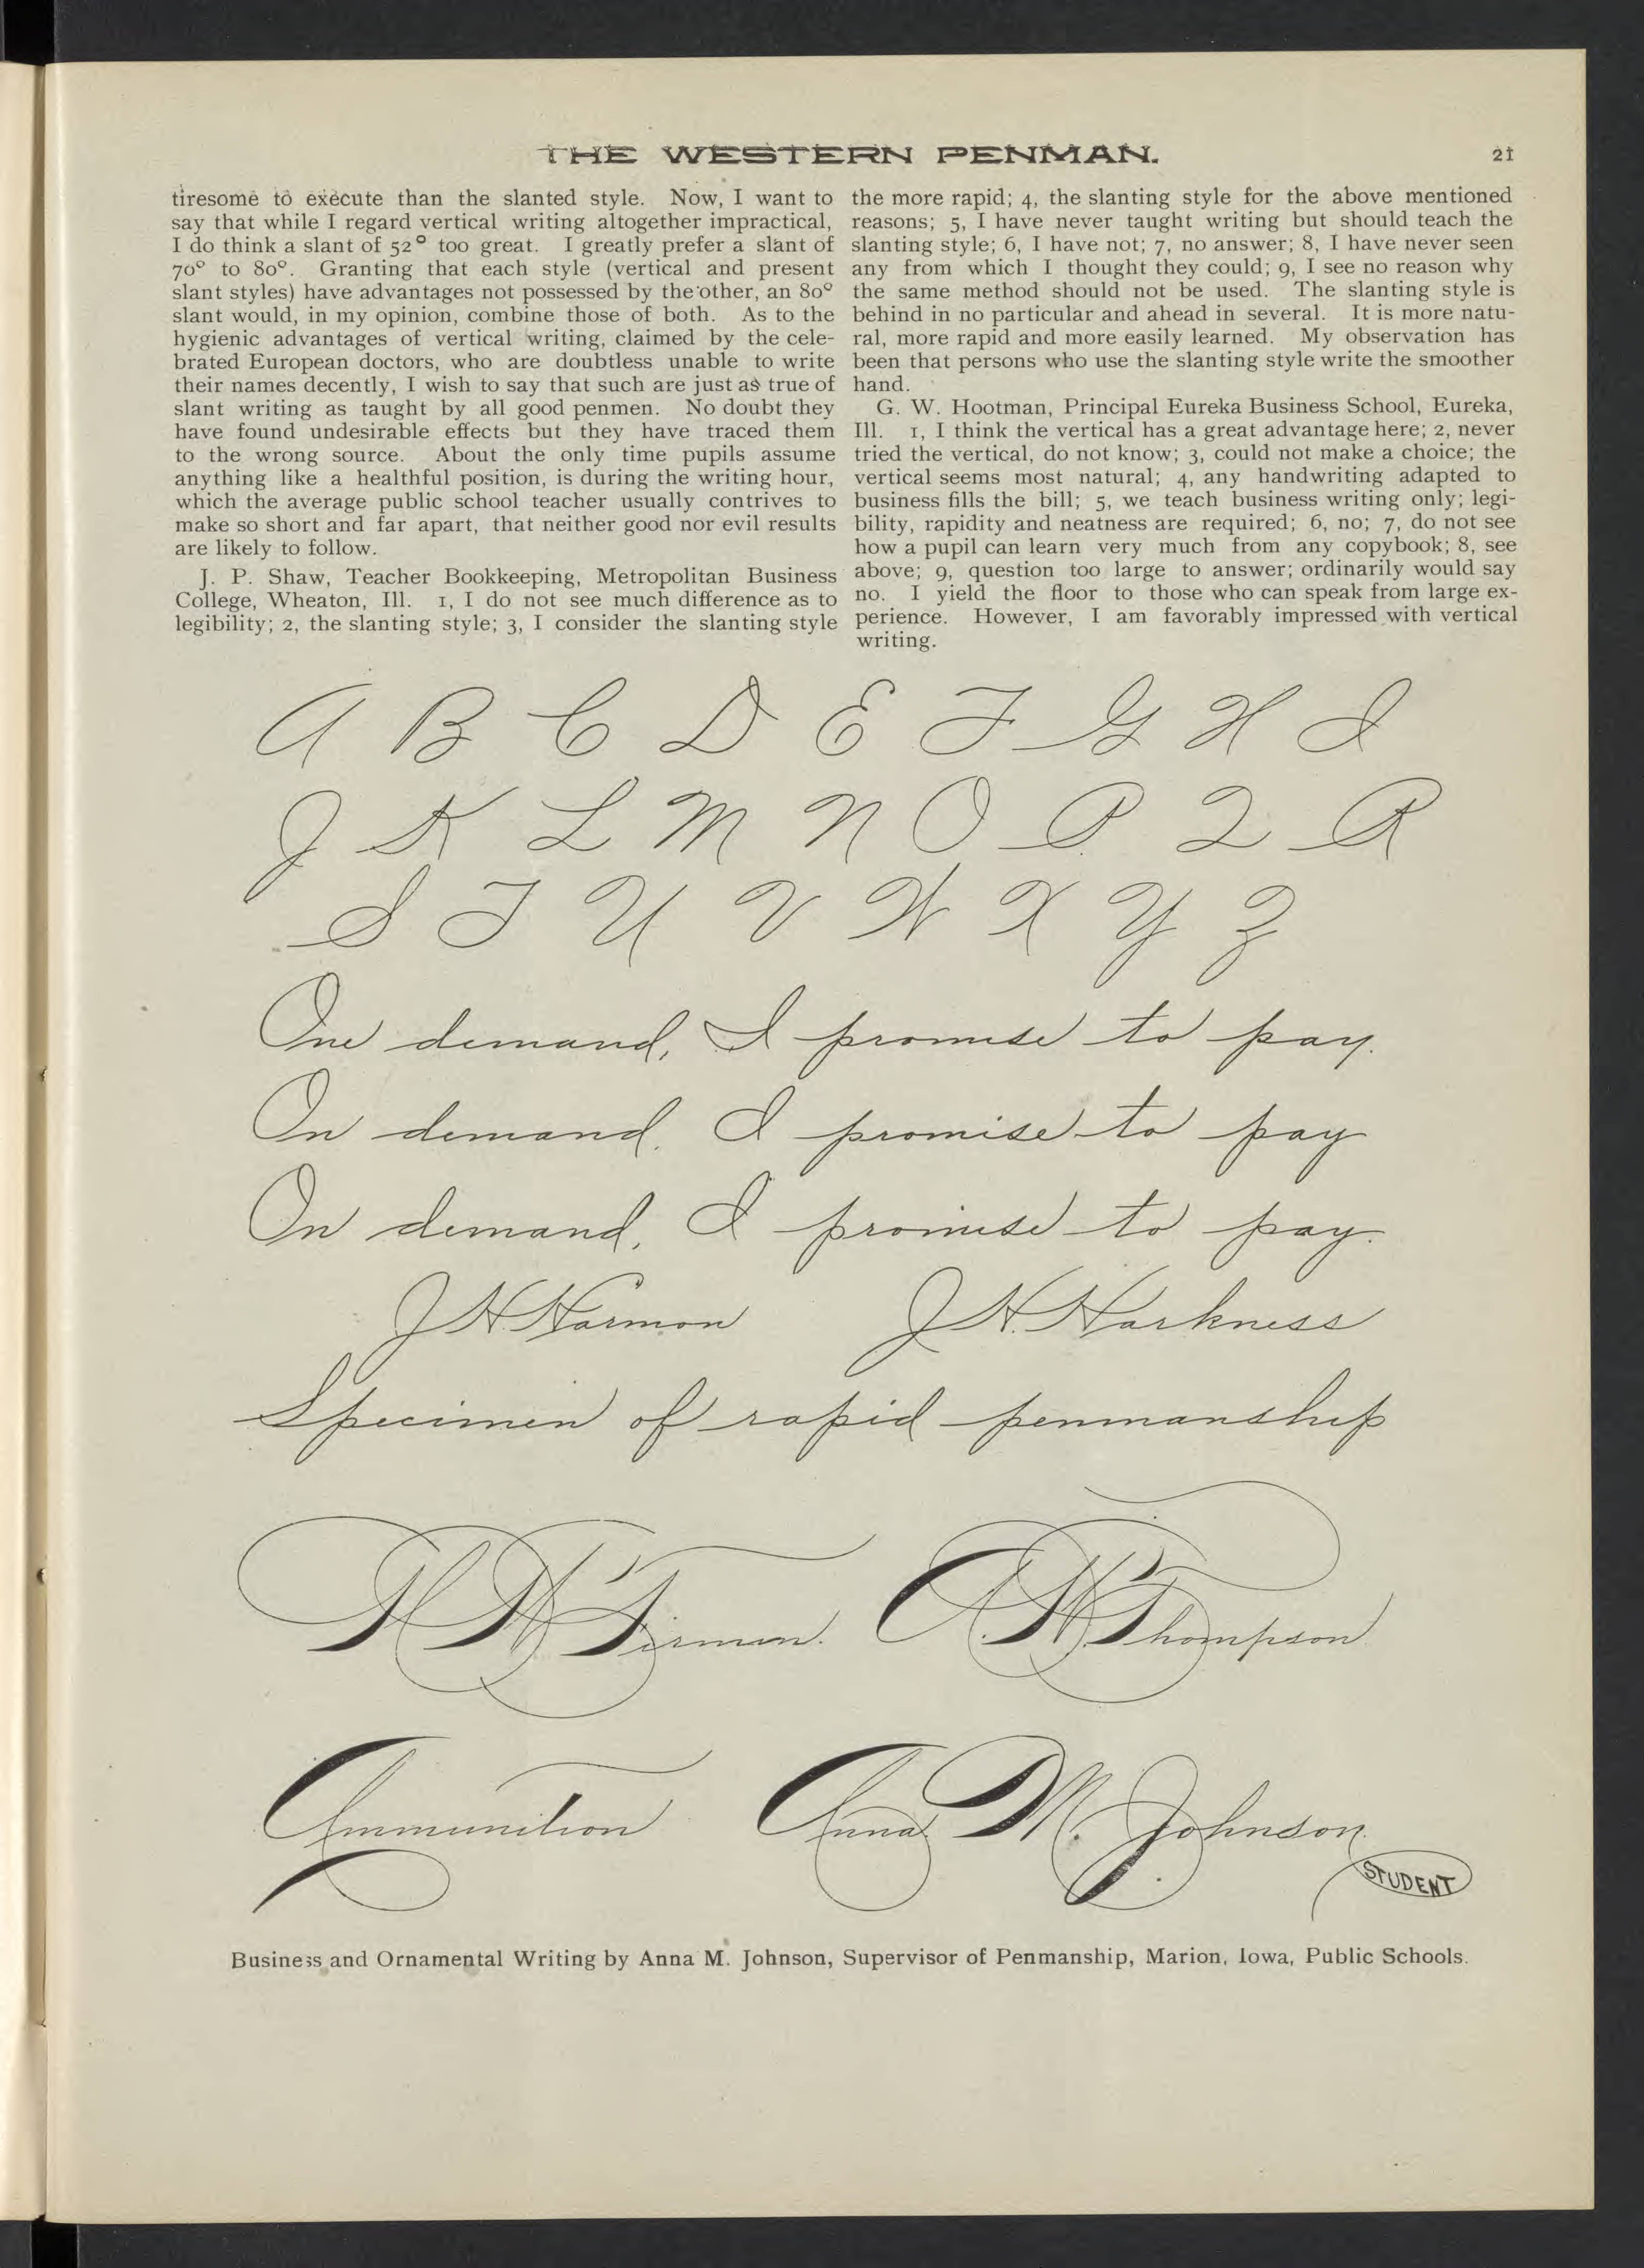 THE WESTERN PENMAN.
21
tiresome to execute than the slanted style. Now, I want to
say that while I regard vertical writing altogether impractical,
I do think a slant of 52° too great. I greatly prefer a slant of
70° to 80°. Granting that each style (vertical and present
slant styles) have advantages not possessed by the other, an 80°
slant would, in my opinion, combine those of both. As to the
hygienic advantages of vertical writing, claimed by the cele-
brated European doctors, who are doubtless unable to write
their names decently, I wish to say that such are just as true of
slant writing as taught by all good penmen. No doubt they
have found undesirable effects but they have traced them
to the wrong source. About the only time pupils assume
anything like a healthful position, is during the writing hour,
which the average public school teacher usually contrives to
make so short and far apart, that neither good nor evil results
are likely to follow.
J. P. Shaw, Teacher Bookkeeping, Metropolitan Business
College, Wheaton, Ill. 1, I do not see much difference as to
legibility; 2, the slanting style; 3, I consider the slanting style
the more rapid; 4, the slanting style for the above mentioned
reasons; 5, I have never taught writing but should teach the
slanting style; 6, I have not; 7, no answer; 8, I have never seen
any from which I thought they could; 9, I see no reason why
the same method should not be used. The slanting style is
behind in no particular and ahead in several. It is more natu-
ral, more rapid and more easily learned. My observation has
been that persons who use the slanting style write the smoother
hand.
G. W. Hootman, Principal Eureka Business School, Eureka,
Ill. 1, I think the vertical has a great advantage here; 2, never
tried the vertical, do not know; 3, could not make a choice; the
vertical seems most natural; 4, any handwriting adapted to
business fills the bill; 5, we teach business writing only; legi-
bility, rapidity and neatness are required; 6, no; 7, do not see
how a pupil can learn very much from any copybook; 8, see
above; 9, question too large to answer; ordinarily would say
no. I yield the floor to those who can speak from large ex-
perience. However, I am favorably impressed with vertical
writing.
A B C D E F G H I
J K L M N O P Q R
S T U V W X Y Z
One demand, I promise to pay.
On demand. I promise to pay
On demand, I promise to pay.
J H Harmon J H. Harkness
Specimen of rapid penmanship
H W Firman. C. W. Thompson
Ammunition Anna M. Johnson.
STUDENT
Business and Ornamental Writing by Anna M. Johnson, Supervisor of Penmanship, Marion, Iowa, Public Schools.